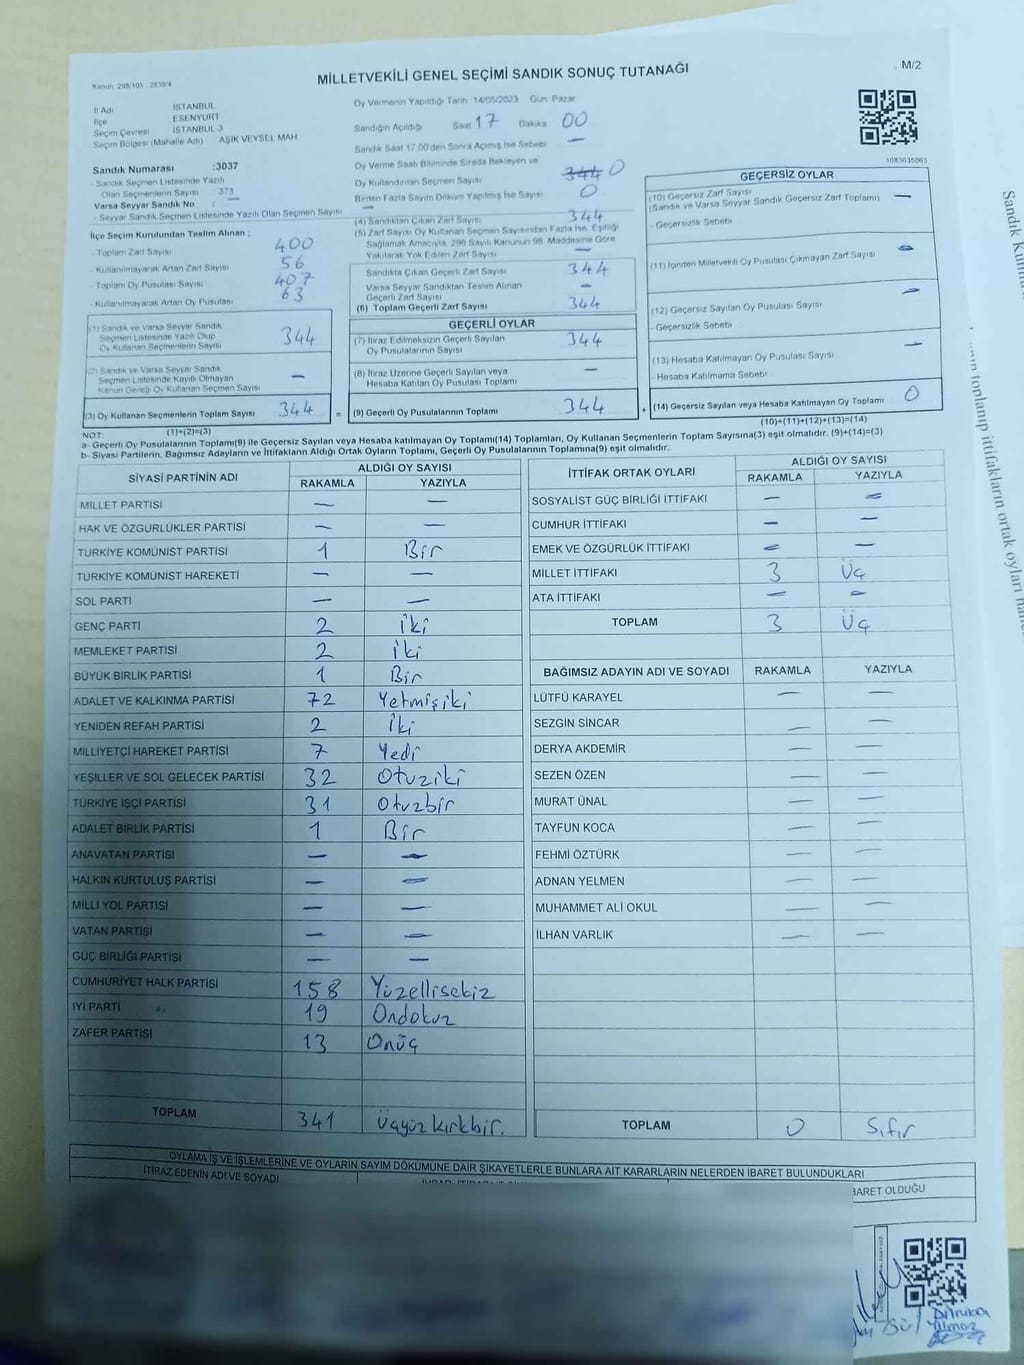 Kanun: 298/105
MİLLETVEKİLİ GENEL SEÇİMİ SANDIK SONUÇ TUTANAĞI
M/2
İl Adı İSTANBUL
İlçe ESENYURT
Seçim Çevresi İSTANBUL-3
Seçim Bölgesi (Mahalle Adı) AŞIK VEYSEL MAH
Sandık Numarası :3037
- Sandık Seçmen Listesinde Yazılı
Olan Seçmenlerin Sayısı 373
Varsa Seyyar Sandık No : —
- Seyyar Sandık Seçmen Listesinde Yazılı Olan Seçmen Sayısı —
İlçe Seçim Kurulundan Teslim Alınan ;
- Toplam Zarf Sayısı 400
- Kullanılmayarak Artan Zarf Sayısı 56
- Toplam Oy Pusulası Sayısı 407
- Kullanılmayarak Artan Oy Pusulası 63
(1) Sandık ve Varsa Seyyar Sandık
Seçmen Listesinde Yazılı Olup
Oy Kullanan Seçmenlerin Sayısı 344
(2) Sandık ve Varsa Seyyar Sandık
Seçmen Listesinde Kayıtlı Olmayan
Kanun Gereği Oy Kullanan Seçmen Sayısı —
(3) Oy Kullanan Seçmenlerin Toplam Sayısı 344 =
(1)+(2)=(3)
Oy Vermenin Yapıldığı Tarih 14/05/2023 Gün: Pazar
Sandığın Açıldığı Saat 17 Dakika 00
Sandık Saat 17:00'den Sonra Açılmış İse Sebebi —
Oy Verme Saati Bitiminde Sırada Bekleyen ve
Oy Kullandırılan Seçmen Sayısı 344 0
Birden Fazla Sayım Döküm Yapılmış İse Sayısı 0
(4) Sandıktan Çıkan Zarf Sayısı 344
(5) Zarf Sayısı Oy Kullanan Seçmen Sayısından Fazla İse, Eşitliği
Sağlamak Amacıyla, 298 Sayılı Kanunun 98. Maddesine Göre
Yakılarak Yok Edilen Zarf Sayısı —
Sandıkta Çıkan Geçerli Zarf Sayısı 344
Varsa Seyyar Sandıktan Teslim Alınan
Geçerli Zarf Sayısı —
(6) Toplam Geçerli Zarf Sayısı 344
GEÇERLİ OYLAR
(7) İtiraz Edilmeksizin Geçerli Sayılan
Oy Pusulalarının Sayısı 344
(8) İtiraz Üzerine Geçerli Sayılan veya
Hesaba Katılan Oy Pusulası Toplamı —
(9) Geçerli Oy Pusulalarının Toplamı 344 +
1083035063
GEÇERSİZ OYLAR
(10) Geçersiz Zarf Sayısı
(Sandık ve Varsa Seyyar Sandık Geçersiz Zarf Toplamı) —
- Geçersizlik Sebebi
(11) İçinden Milletvekili Oy Pusulası Çıkmayan Zarf Sayısı —
(12) Geçersiz Sayılan Oy Pusulası Sayısı —
- Geçersizlik Sebebi
(13) Hesaba Katılmayan Oy Pusulası Sayısı —
- Hesaba Katılmama Sebebi
(14) Geçersiz Sayılan veya Hesaba Katılmayan Oy Toplamı 0
(10)+(11)+(12)+(13)=(14)
NOT:
a- Geçerli Oy Pusulalarının Toplamı(9) ile Geçersiz Sayılan veya Hesaba katılmayan Oy Toplamı(14) Toplamları, Oy Kullanan Seçmenlerin Toplam Sayısına(3) eşit olmalıdır. (9)+(14)=(3)
b- Siyasi Partilerin, Bağımsız Adayların ve İttifakların Aldığı Ortak Oyların Toplamı, Geçerli Oy Pusulalarının Toplamına(9) eşit olmalıdır.
SİYASİ PARTİNİN ADI ALDIĞI OY SAYISI
RAKAMLA YAZIYLA
MİLLET PARTİSİ — —
HAK VE ÖZGÜRLÜKLER PARTİSİ — —
TÜRKİYE KOMÜNİST PARTİSİ 1 Bir
TÜRKİYE KOMÜNİST HAREKETİ — —
SOL PARTİ — —
GENÇ PARTİ 2 İki
MEMLEKET PARTİSİ 2 İki
BÜYÜK BİRLİK PARTİSİ 1 Bir
ADALET VE KALKINMA PARTİSİ 72 Yetmişiki
YENİDEN REFAH PARTİSİ 2 İki
MİLLİYETÇİ HAREKET PARTİSİ 7 Yedi
YEŞİLLER VE SOL GELECEK PARTİSİ 32 Otuziki
TÜRKİYE İŞÇİ PARTİSİ 31 Otuzbir
ADALET BİRLİK PARTİSİ 1 Bir
ANAVATAN PARTİSİ — —
HALKIN KURTULUŞ PARTİSİ — —
MİLLİ YOL PARTİSİ — —
VATAN PARTİSİ — —
GÜÇ BİRLİĞİ PARTİSİ — —
CUMHURİYET HALK PARTİSİ 158 Yüzellisekiz
İYİ PARTİ 19 Ondokuz
ZAFER PARTİSİ 13 Onüç
TOPLAM 341 Üçyüzkırkbir.
İTTİFAK ORTAK OYLARI ALDIĞI OY SAYISI
RAKAMLA YAZIYLA
SOSYALİST GÜÇ BİRLİĞİ İTTİFAKI — —
CUMHUR İTTİFAKI — —
EMEK VE ÖZGÜRLÜK İTTİFAKI — —
MİLLET İTTİFAKI 3 Üç
ATA İTTİFAKI — —
TOPLAM 3 Üç
BAĞIMSIZ ADAYIN ADI VE SOYADI RAKAMLA YAZIYLA
LÜTFÜ KARAYEL — —
SEZGİN SİNCAR — —
DERYA AKDEMİR — —
SEZEN ÖZEN — —
MURAT ÜNAL — —
TAYFUN KOCA — —
FEHMİ ÖZTÜRK — —
ADNAN YELMEN — —
MUHAMMET ALİ OKUL — —
İLHAN VARLIK — —
TOPLAM 0 Sıfır
OYLAMA İŞ VE İŞLEMLERİNE VE OYLARIN SAYIM DÖKÜMÜNE DAİR ŞİKAYETLERLE BUNLARA AİT KARARLARIN NELERDEN İBARET BULUNDUKLARI
İTİRAZ EDENİN ADI VE SOYADI
BARET OLDUĞU
Gül
Yılmaz
toplanıp ittifakların ortak oyları